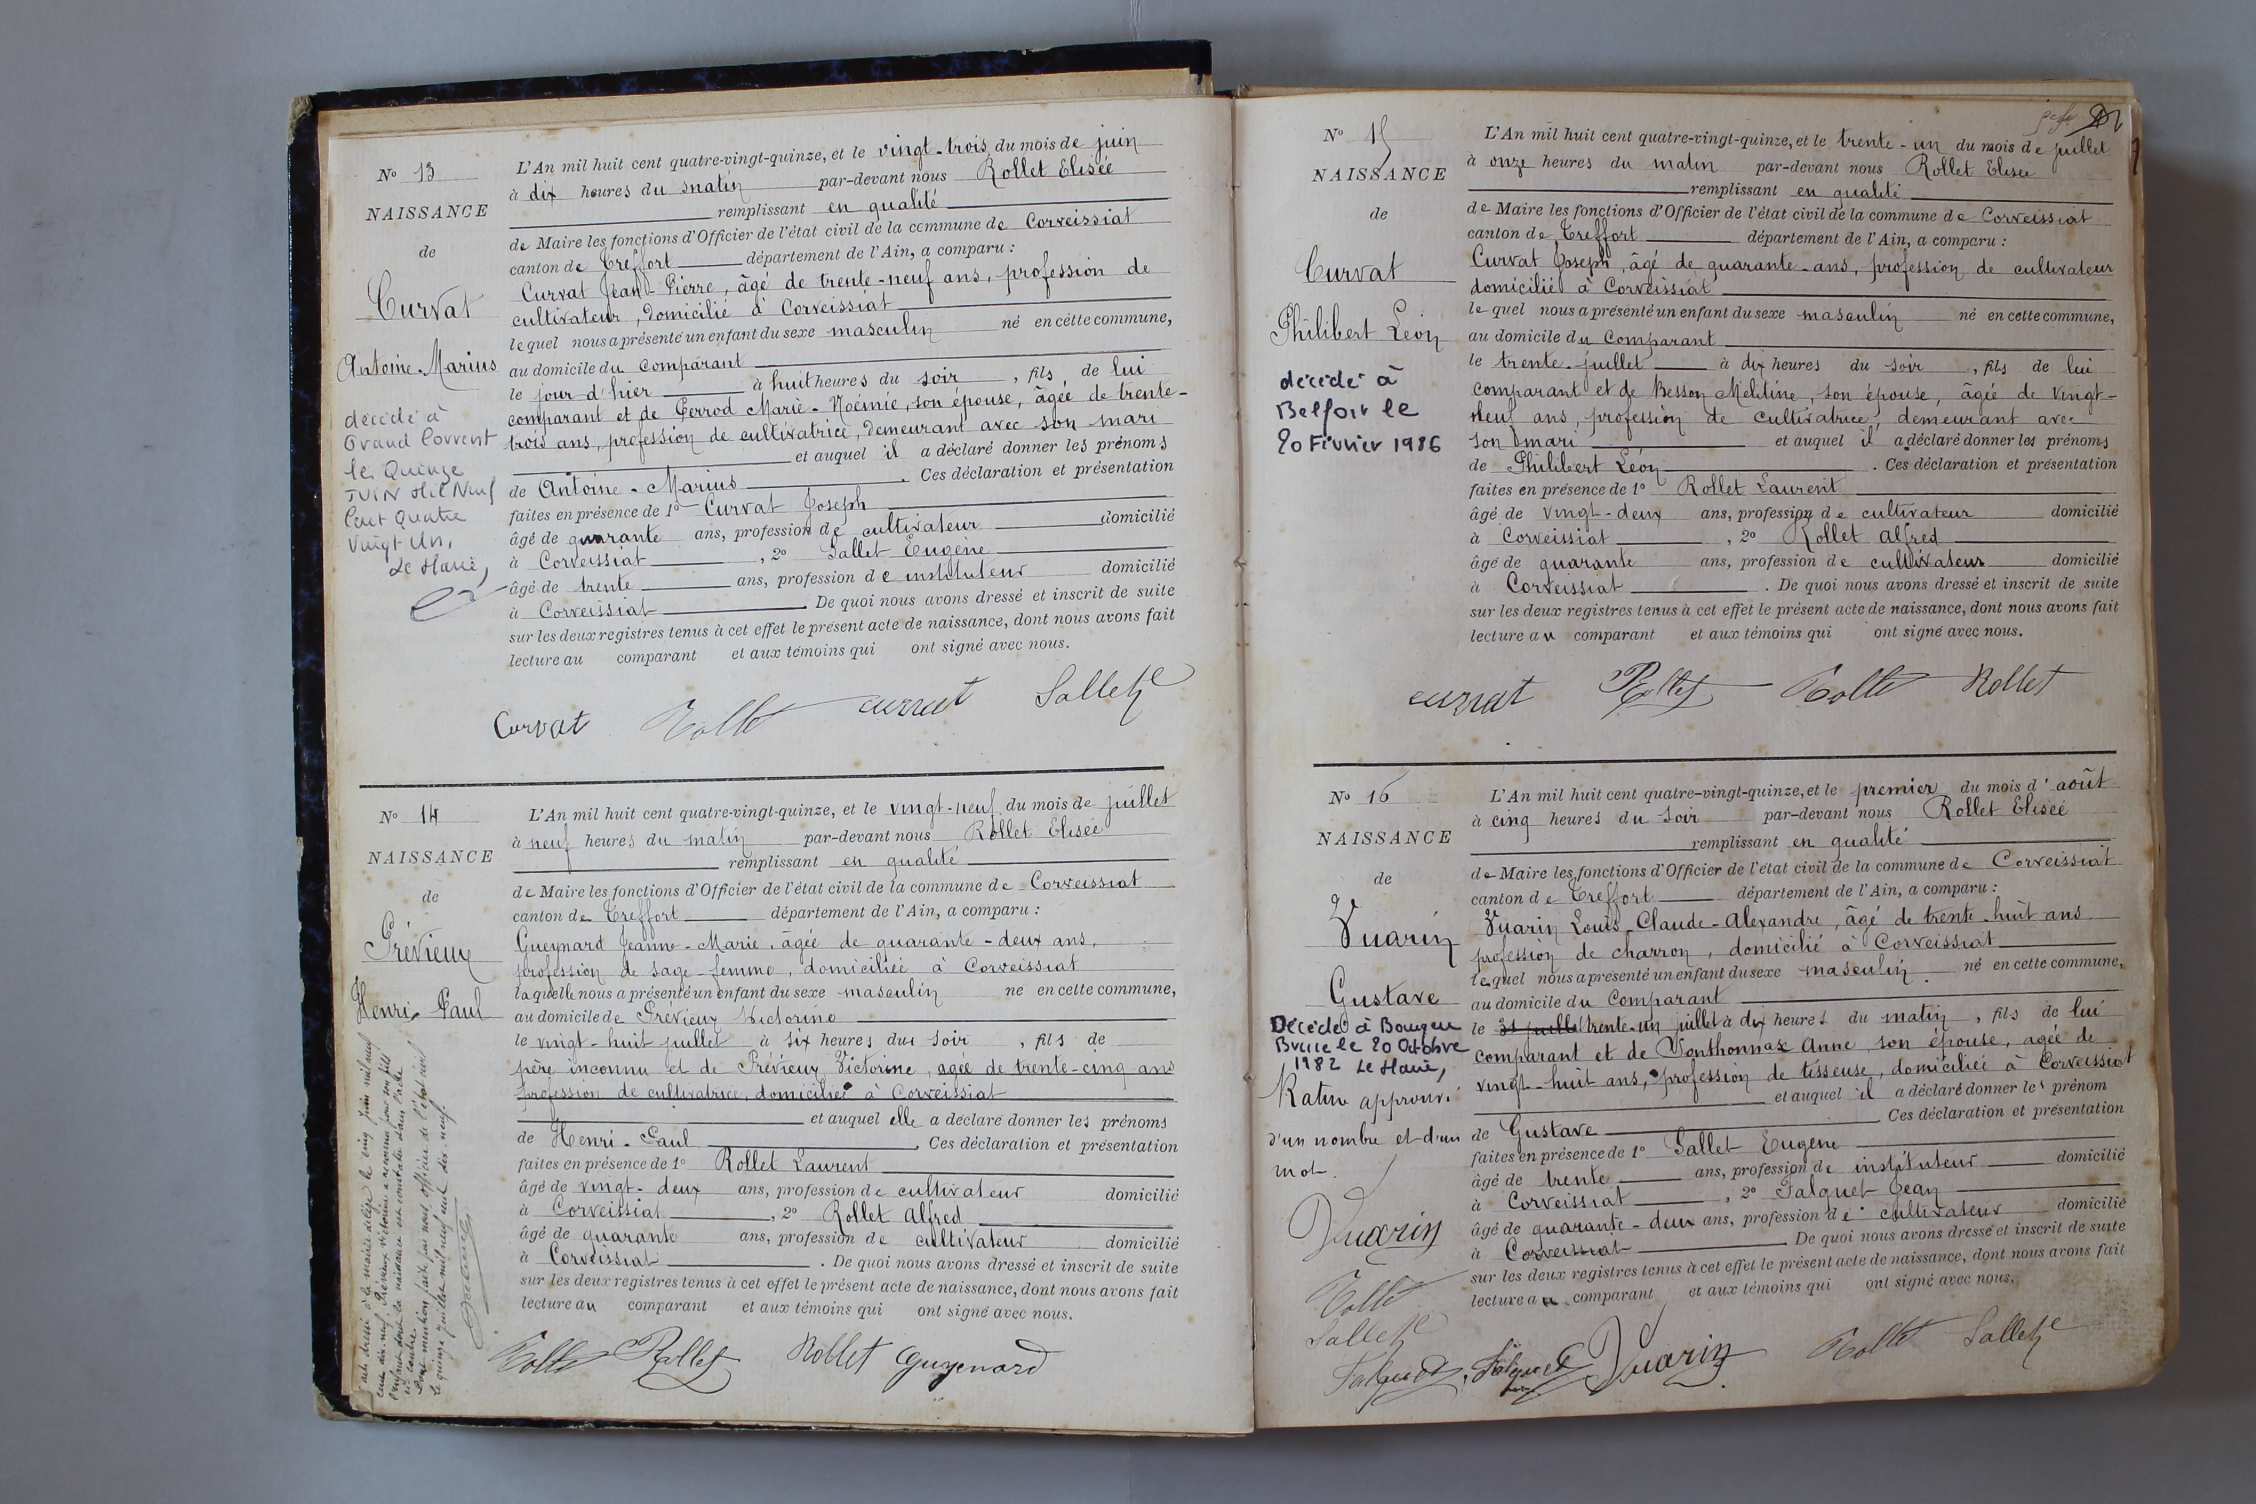 No 13
NAISSANCE
de
Curvat
Antoine-Marius
décédé à
Grand Corrent
le Quinze
JUIN Mil Neuf
Cent Quatre
Vingt Un,
Le Maire,
L'An mil huit cent quatre-vingt-quinze, et le vingt-trois du mois de juin
à dix heures du matin par-devant nous Rollet Elisée
remplissant en qualité
de Maire les fonctions d'Officier de l'état civil de la commune de Corveissiat
canton de Treffort département de l'Ain, a comparu :
Curvat Jean-Pierre, âgé de trente-neuf ans, profession de
cultivateur, domicilié à Corveissiat
lequel nous a présenté un enfant du sexe masculin né en cette commune,
au domicile du comparant
le jour d'hier à huit heures du soir, fils de lui
comparant et de Perrod Marie-Noémie, son épouse, âgée de trente-
trois ans, profession de cultivatrice, demeurant avec son mari
et auquel il a déclaré donner les prénoms
de Antoine-Marius. Ces déclaration et présentation
faites en présence de 1o Curvat Joseph
âgé de quarante ans, profession de cultivateur domicilié
à Corveissiat, 2o Sallet Eugène
âgé de trente ans, profession de instituteur domicilié
à Corveissiat. De quoi nous avons dressé et inscrit de suite
sur les deux registres tenus à cet effet le présent acte de naissance, dont nous avons fait
lecture au comparant et aux témoins qui ont signé avec nous.
Curvat Rollet curvat Sallet
No 14
NAISSANCE
de
Prévieux
Henri-Paul
L'An mil huit cent quatre-vingt-quinze, et le vingt-neuf du mois de juillet
à neuf heures du matin par-devant nous Rollet Elisée
remplissant en qualité
de Maire les fonctions d'Officier de l'état civil de la commune de Corveissiat
canton de Treffort département de l'Ain, a comparu :
Gueynard Jeanne-Marie, âgée de quarante-deux ans,
profession de sage-femme, domiciliée à Corveissiat
laquelle nous a présenté un enfant du sexe masculin né en cette commune,
au domicile de Prévieux Victorine
le vingt-huit juillet à six heures du soir, fils de
père inconnu et de Prévieux Victorine, agée de trente-cinq ans
profession de cultivatrice, domiciliée à Corveissiat
et auquel elle a déclaré donner les prénoms
de Henri-Paul. Ces déclaration et présentation
faites en présence de 1o Rollet Laurent
âgé de vingt-deux ans, profession de cultivateur domicilié
à Corveissiat, 2o Rollet Alfred
âgé de quarante ans, profession de cultivateur domicilié
à Corveissiat. De quoi nous avons dressé et inscrit de suite
sur les deux registres tenus à cet effet le présent acte de naissance, dont nous avons fait
lecture au comparant et aux témoins qui ont signé avec nous.
Rollet Rollet Rollet Gueynard
acte dressé à la mairie le cinq juin mil neuf
cent dix-neuf, Prévieux Victorine a reconnu pour son fils
l'enfant dont la naissance est constatée dans l'acte
ci-contre.
Dont mention faite par nous officier de l'état civil
le quinze juillet mil neuf cent dix-neuf
No 15
NAISSANCE
de
Curvat
Philibert Léon
décédé à
Belfort le
20 Février 1986
L'An mil huit cent quatre-vingt-quinze, et le trente-un du mois de juillet
à onze heures du matin par-devant nous Rollet Elisée
remplissant en qualité
de Maire les fonctions d'Officier de l'état civil de la commune de Corveissiat
canton de Treffort département de l'Ain, a comparu :
Curvat Joseph, âgé de quarante-ans, profession de cultivateur
domicilié à Corveissiat
lequel nous a présenté un enfant du sexe masculin né en cette commune,
au domicile du Comparant
le trente-juillet à dix heures du soir, fils de lui
comparant et de Besson Mélitine, son épouse, âgée de vingt-
neuf ans, profession de cultivatrice, demeurant avec
son mari et auquel il a déclaré donner les prénoms
de Philibert Léon. Ces déclaration et présentation
faites en présence de 1o Rollet Laurent
âgé de vingt-deux ans, profession de cultivateur domicilié
à Corveissiat, 2o Rollet Alfred
âgé de quarante ans, profession de cultivateur domicilié
à Corveissiat. De quoi nous avons dressé et inscrit de suite
sur les deux registres tenus à cet effet le présent acte de naissance, dont nous avons fait
lecture au comparant et aux témoins qui ont signé avec nous.
curvat Rollet Rollet Rollet
No 16
NAISSANCE
de
Vuarin
Gustave
Décédé à Bourg en
Bresse le 20 Octobre
1982 Le Maire,
Rature approuvé
d'un nombre et d'un
mot.
Vuarin
Rollet
Sallet
Falquet
L'An mil huit cent quatre-vingt-quinze, et le premier du mois d'août
à cinq heures du soir par-devant nous Rollet Elisée
remplissant en qualité
de Maire les fonctions d'Officier de l'état civil de la commune de Corveissiat
canton de Treffort département de l'Ain, a comparu :
Vuarin Louis-Claude-Alexandre, âgé de trente-huit ans
profession de charron, domicilié à Corveissiat
lequel nous a présenté un enfant du sexe masculin né en cette commune,
au domicile du Comparant
le 31 juillet trente-un juillet à dix heures du matin, fils de lui
comparant et de Vonthonnax Anne, son épouse, agée de
vingt-huit ans, profession de tisseuse, domiciliée à Corveissiat
et auquel il a déclaré donner les prénom
de Gustave Ces déclaration et présentation
faites en présence de 1o Sallet Eugène
âgé de trente ans, profession de instituteur domicilié
à Corveissiat, 2o Falquet Jean
âgé de quarante-deux ans, profession de cultivateur domicilié
à Corveissiat. De quoi nous avons dressé et inscrit de suite
sur les deux registres tenus à cet effet le présent acte de naissance, dont nous avons fait
lecture au comparant et aux témoins qui ont signé avec nous.
Falquet Vuarin Rollet Sallet